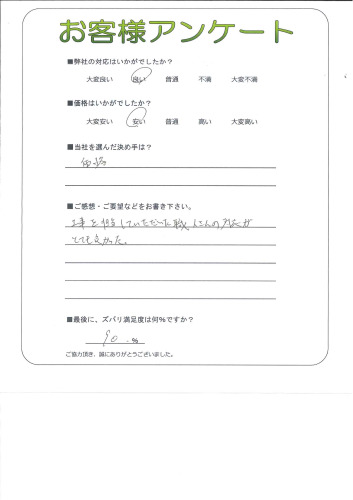 お客様アンケート
■弊社の対応はいかがでしたか?
大変良い 良い 普通 不満 大変不満
■価格はいかがでしたか?
大変安い 安い 普通 高い 大変高い
■当社を選んだ決め手は?
価格
■ご感想・ご要望などをお書き下さい。
工事を担当していただいた職人さんの対応が
とても良かった。
■最後に、ズバリ満足度は何%ですか?
90 %
ご協力頂き、誠にありがとうございました。